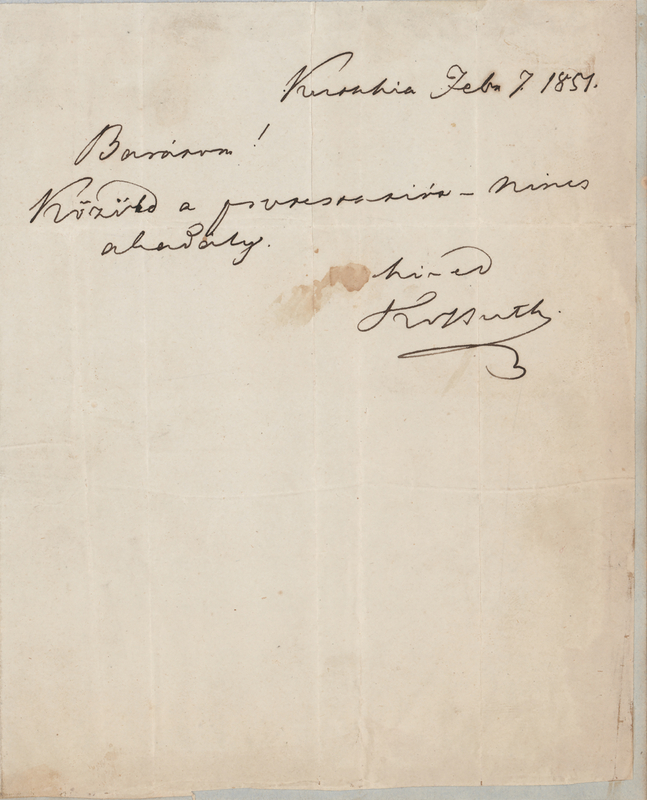 Kutahia Feb. 7. 1851.
Barátom!
Közöld a protestatiót – nincs
akadály.
hived
Kossuth